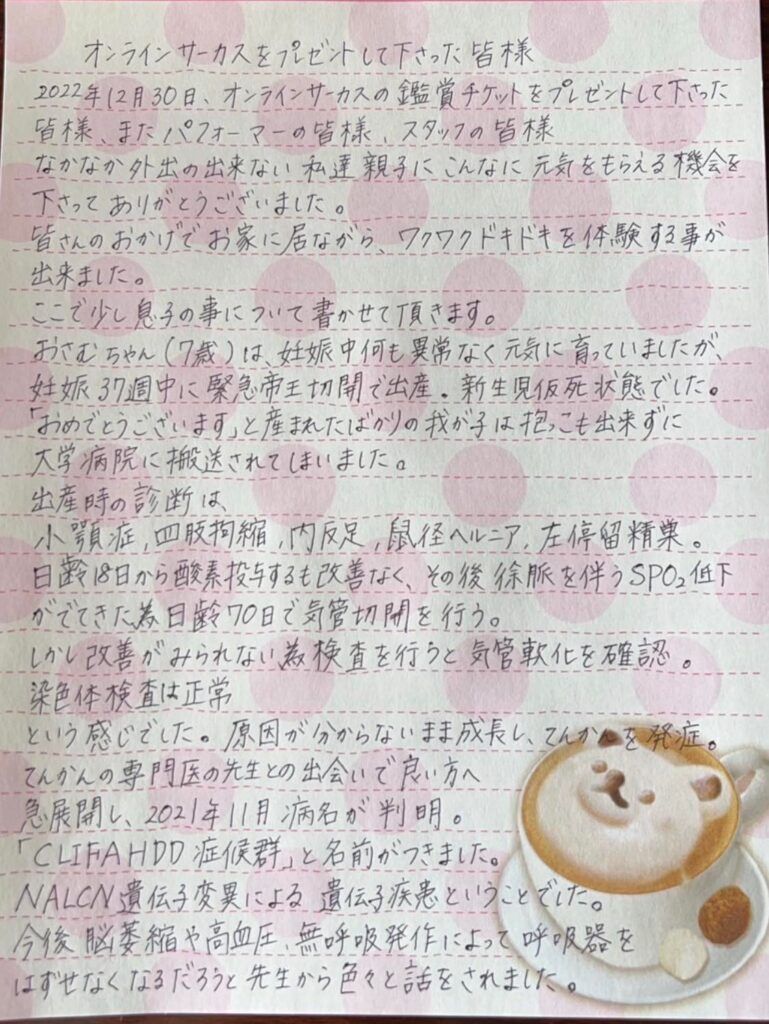 オンラインサーカスをプレゼントして下さった皆様
2022年12月30日、オンラインサーカスの鑑賞チケットをプレゼントして下さった
皆様、またパフォーマーの皆様、スタッフの皆様
なかなか外出の出来ない私達親子にこんなに元気をもらえる機会を
下さってありがとうございました。
皆さんのおかげでお家に居ながら、ワクワクドキドキを体験する事が
出来ました。
ここで少し息子の事について書かせて頂きます。
おさむちゃん(7歳)は、妊娠中何も異常なく元気に育っていましたが、
妊娠37週中に緊急帝王切開で出産。新生児仮死状態でした。
「おめでとうございます」と産まれたばかりの我が子は抱っこも出来ずに
大学病院に搬送されてしまいました。
出産時の診断は、
小顎症,四肢拘縮,内反足,鼠径ヘルニア,左停留精巣。
日齢18日から酸素投与するも改善なく、その後徐脈を伴うSPO₂低下
がでてきた為日齢70日で気管切開を行う。
しかし改善がみられない為検査を行うと気管軟化を確認。
染色体検査は正常
という感じでした。原因が分からないまま成長し、てんかんを発症。
てんかんの専門医の先生との出会いで良い方へ
急展開し、2021年11月病名が判明。
「CLIFAHDD症候群」と名前がつきました。
NALCN遺伝子変異による遺伝子疾患ということでした。
今後脳萎縮や高血圧、無呼吸発作によって呼吸器を
はずせなくなるだろうと先生から色々と話をされました。